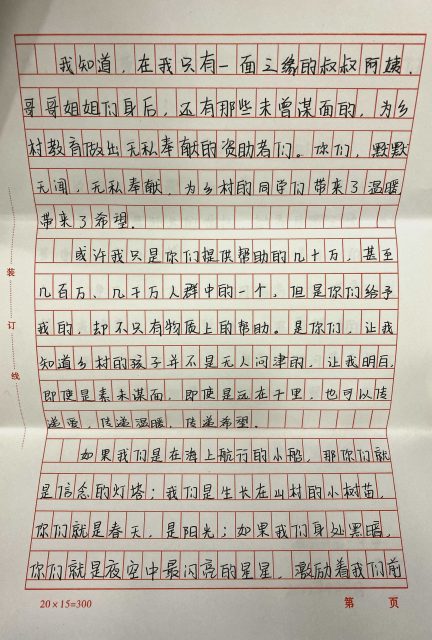 我知道，在我只有一面之缘的叔叔阿姨、
哥哥姐姐们身后，还有那些未曾谋面的，为乡
村教育做出无私奉献的资助者们。你们，默默
无闻，无私奉献，为乡村的同学们带来了温暖
带来了希望。
或许我只是你们提供帮助的几十万，甚至
几百万、几千万人群中的一个，但是你们给予
我的，却不只有物质上的帮助。是你们，让我
知道乡村的孩子并不是无人问津的，让我明白，
即使是素未谋面，即使是远在千里，也可以传
递爱，传递温暖，传递希望。
如果我们是在海上航行的小船，那你们就
是信念的灯塔；我们是生长在山村的小树苗，
你们就是春天，是阳光；如果我们身处黑暗，
你们就是夜空中最闪亮的星星，激励着我们前
装
订
线
20×15=300 第 页